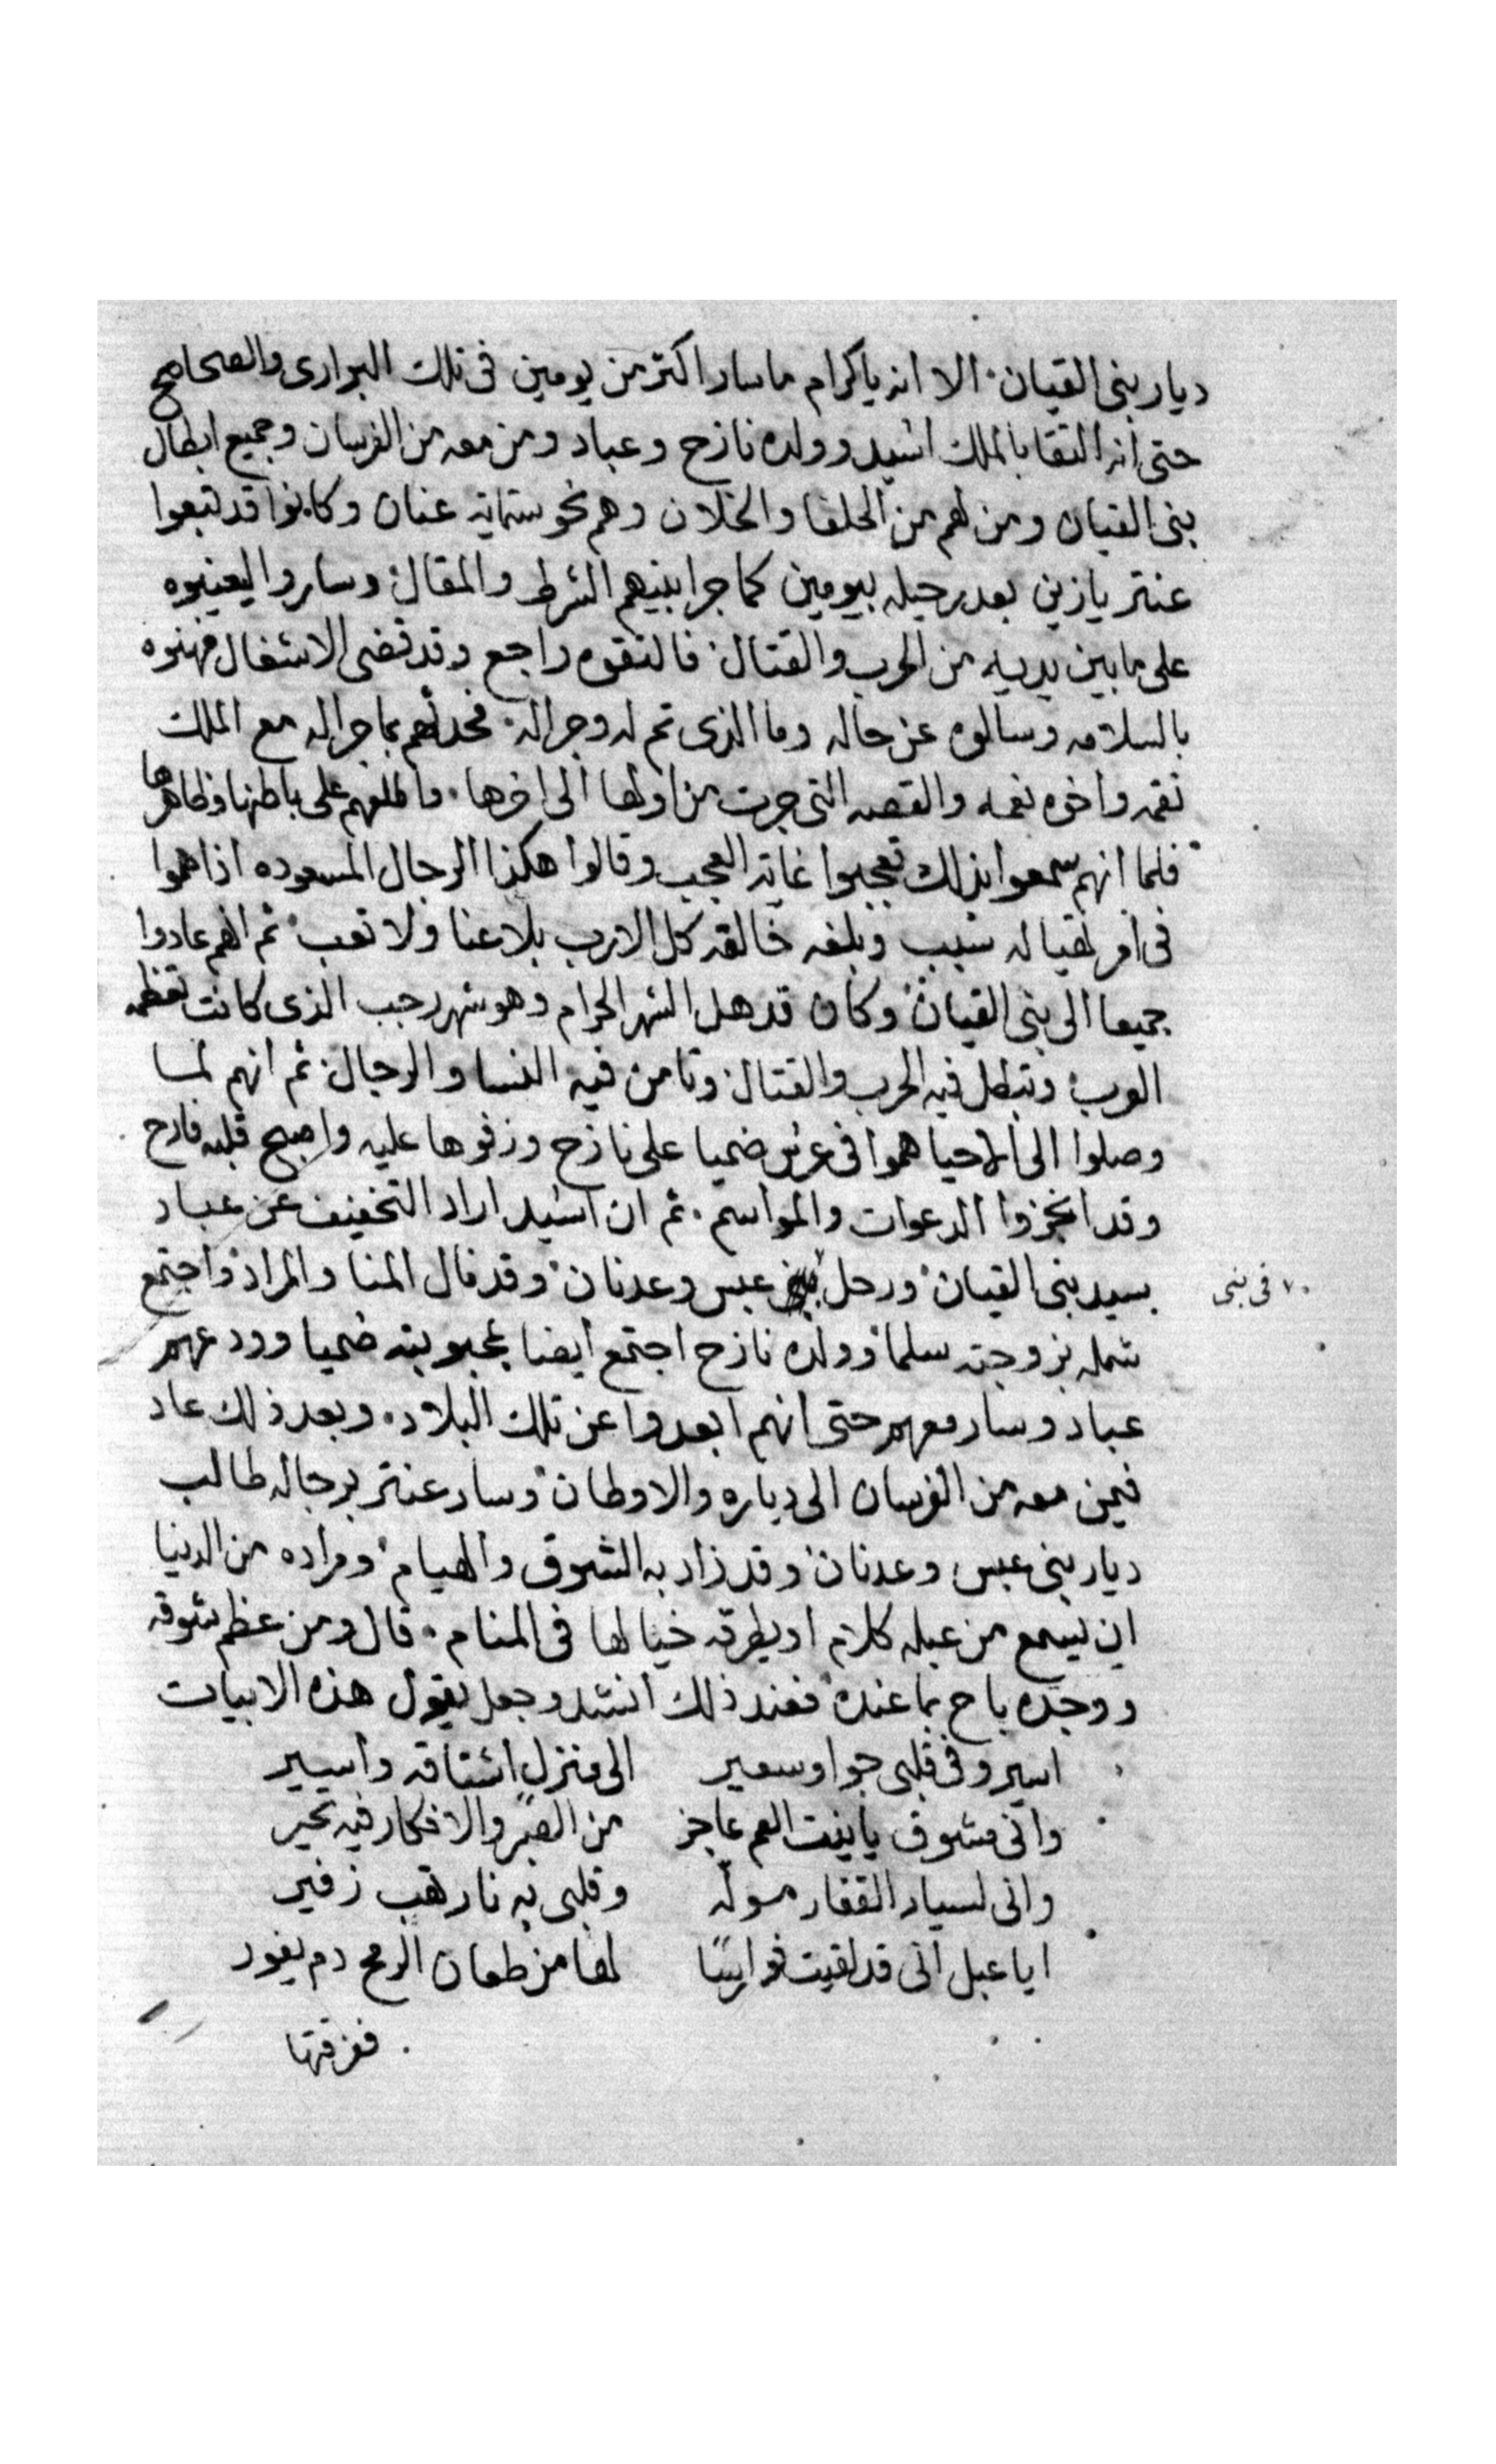 ديار بنى القيان الا انه ياكرام ماسار اكثر من يومين فى تلك البرارى والصحاصح
حتى انه التقا بالملك اسَيد وولده نازح وعباد ومن معه من الفرسان وجميع ابطال
بنى القيان ومن لهم من الحلفا والخلان وهم نحو ستماية عنان وكانوا قد تبعوا
عنتر يازين بعد رحيله بيومين كما جرا بينهم الشرط والمقال وساروا ليعينوه
على ما بين يديه من الحرب والقتال فالتقوه راجع وقد قضى الاشغال فهنوه
بالسلامه وسالوه عن حاله وما الذى تم له وجراله فحدثهم بما جراله مع الملك
نقمه واخوه نعمه والقصه التى جرت من اولها الى اخرها واطلعهم على باطنها وظاهرها
فلما انهم سمعوا بذلك تعجبوا غاية العجب وقالوا هكذا الرجال المسعوده اذا هموا
فى امر تهيا له سبب وبلغه خالقه كل الارب بلا عنا ولا تعب ثم انهم عادوا
جميعا الى بنى القيان وكان قد هل الشهر الحرام وهو شهر رجب الذى كانت تعظمه
العرب وتبطل فيه الحرب والقتال وتامن فيه النسا والرجال ثم انهم لما
وصلوا الى الاحيا هموا فى عرس ضميا على نازح وزفوها عليه واصبح قلبه فارح
وقد انجزوا الدعوات والمواسم ثم ان اسيد اراد التخفيف عن عباد
بسيد بنى القيان ورحل عبس وعدنان وقد نال المنا والمراد واجتمع
فى بنى
شمله بزوجته سلما وولده نازح اجتمع ايضا بمحبوبته ضميا وودعهم
عباد وسار معهم حتى انهم ابعدوا عن تلك البلاد وبعد ذلك عاد
فيمن معه من الفرسان الى دياره والاوطان وسار عنتر برجاله طالب
ديار بنى عبس وعدنان وقد زاد به الشوق والهيام ومراده من الدنيا
ان يسمع من عبله كلام او يطرقه خيالها فى المنام قال ومن عظم شوقه
ووجده باح بما عنده فعند ذلك انشد وجعل يقول هذه الابيات
اسير وفى قلبى جوا وسعير الى منزل اشتاقه واسير
وانى مشوق يابنت العم عاجز من الصبر والافكار فيه تحير
وانى لسيار القفار موله وقلبى به نار تهب زفير
ايا عبل انى قد لقيت فوارسًا لها من طعان الرمح دم يفور
ففرقتها